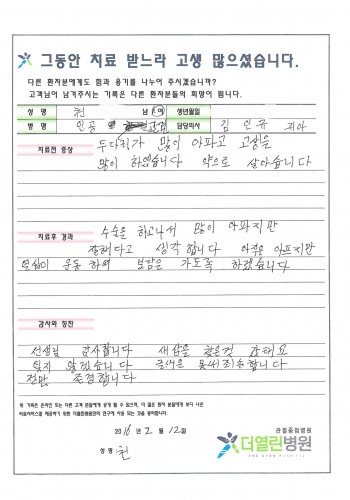 그동안 치료 받느라 고생 많으셨습니다.
다른 환자분에게도 힘과 용기를 나누어 주시겠습니까?
고객님이 남겨주시는 기록은 다른 환자분들의 희망이 됩니다.
성 명 천 남 여 생년월일
병 명 인공 관절 담당의사 김인규
치료전 증상
두다리가 많이 아파고 고생을
많이 하였습니다 약으로 살아습니다
치료후 경과
수술은 하고나서 많이 아파지만
잘해다고 생각 합니다 아주은 아프지만
열심이 운동 하여 보답은 가도록 하겠습니다
감사와 칭찬
선생님 감사합니다 새삶을 찾은것 같애요
잊지 않겠습니다 글내은 못써(죄송합니다
정말 존경합니다
위 기록은 온라인 또는 다른 고객 분들에게 공개 될 수 있으며, 더 많은 환자 분들에게 보다 나은
의료서비스를 제공하기 위한 더열린병원만의 연구에 사용 되는 것을 동의합니다.
2016 년 2 월 12 일
성명 : 천
관절중점병원
더열린병원
THE OPEN HOSPITAL